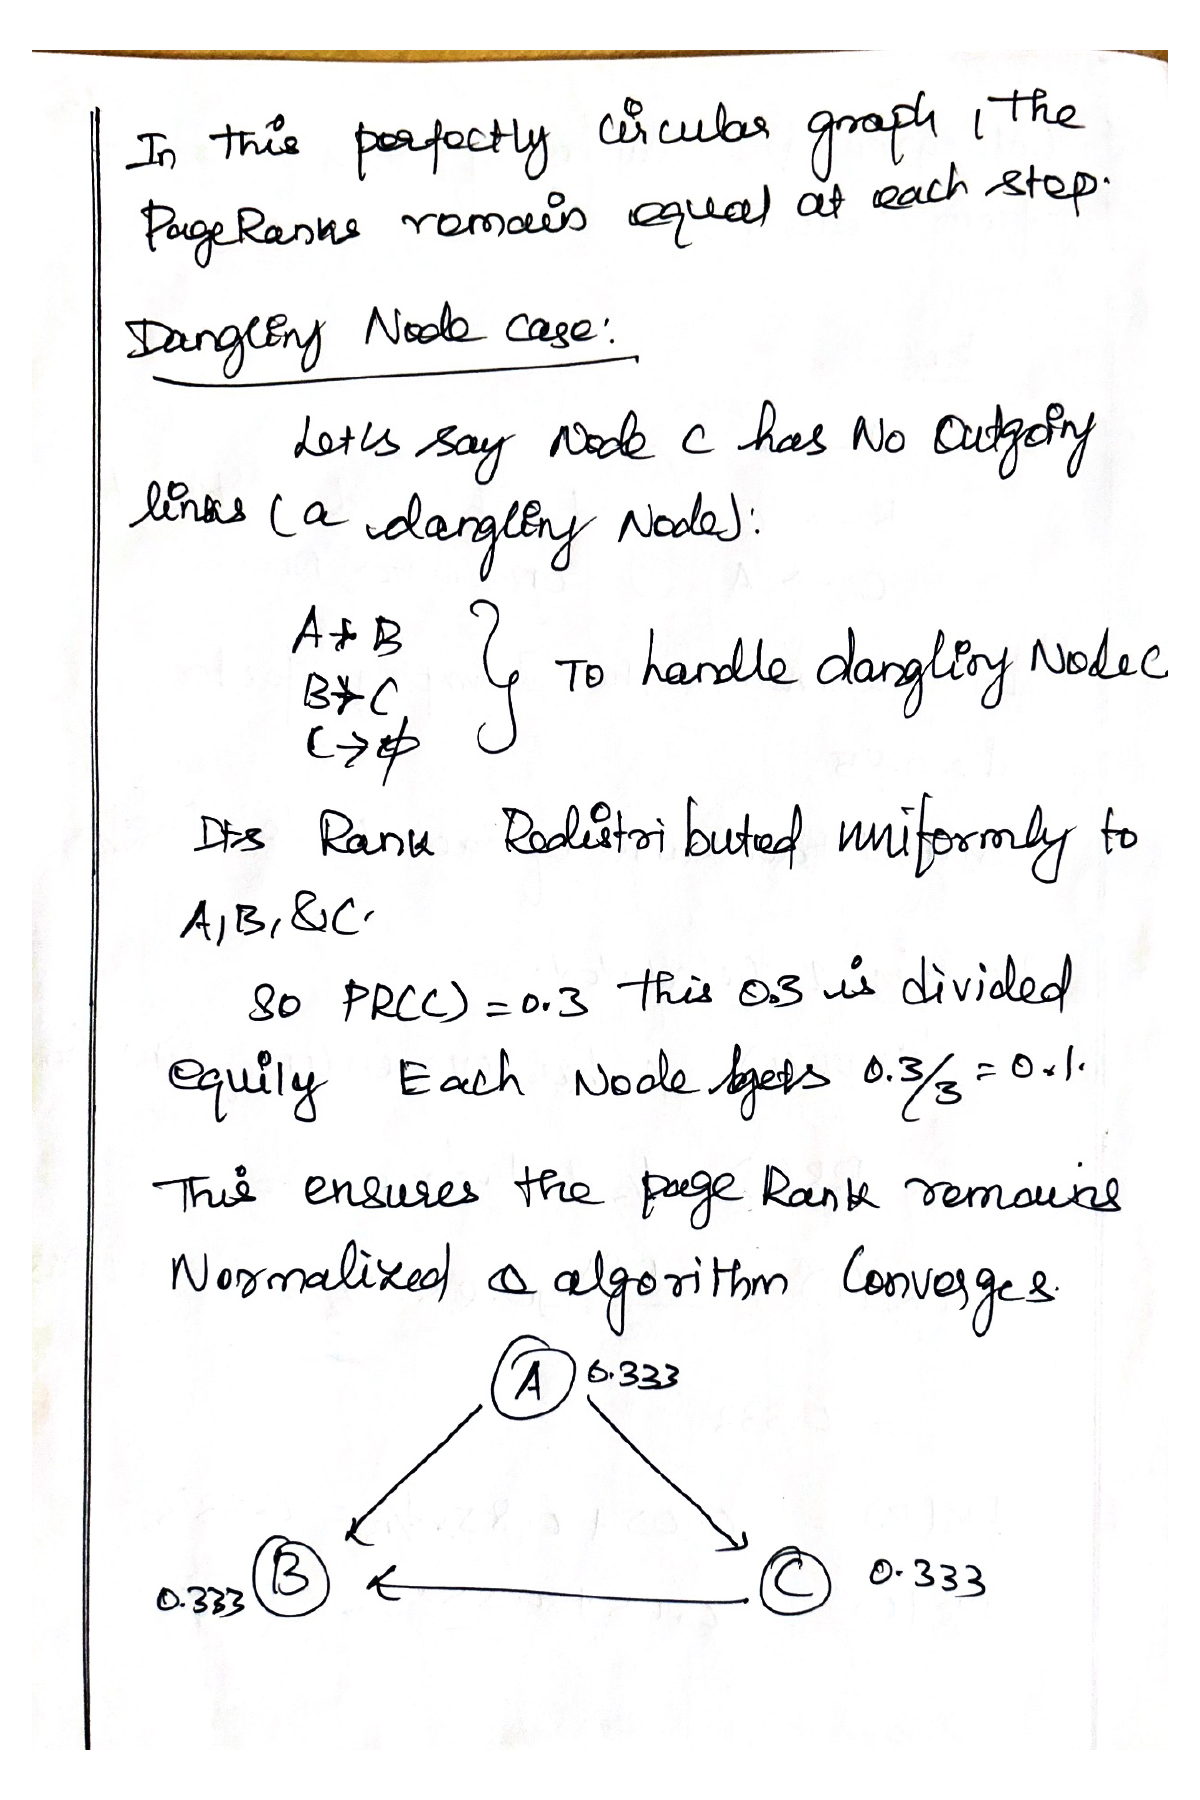 In this perfectly circular graph, the
PageRanks remains equal at each step.
Dangling Node case:
Let's say Node C has No Outgoing
links (a dangling Node):
A → B
B → C
C → ϕ
} To handle dangling Node C
Its Rank Redistributed uniformly to
A, B, & C.
So PR(C) = 0.3 this 0.3 is divided
equily Each Node gets 0.3/3 = 0.1.
This ensures the page Rank remains
Normalized & algorithm Converges.
A 0.333
0.333 B C 0.333